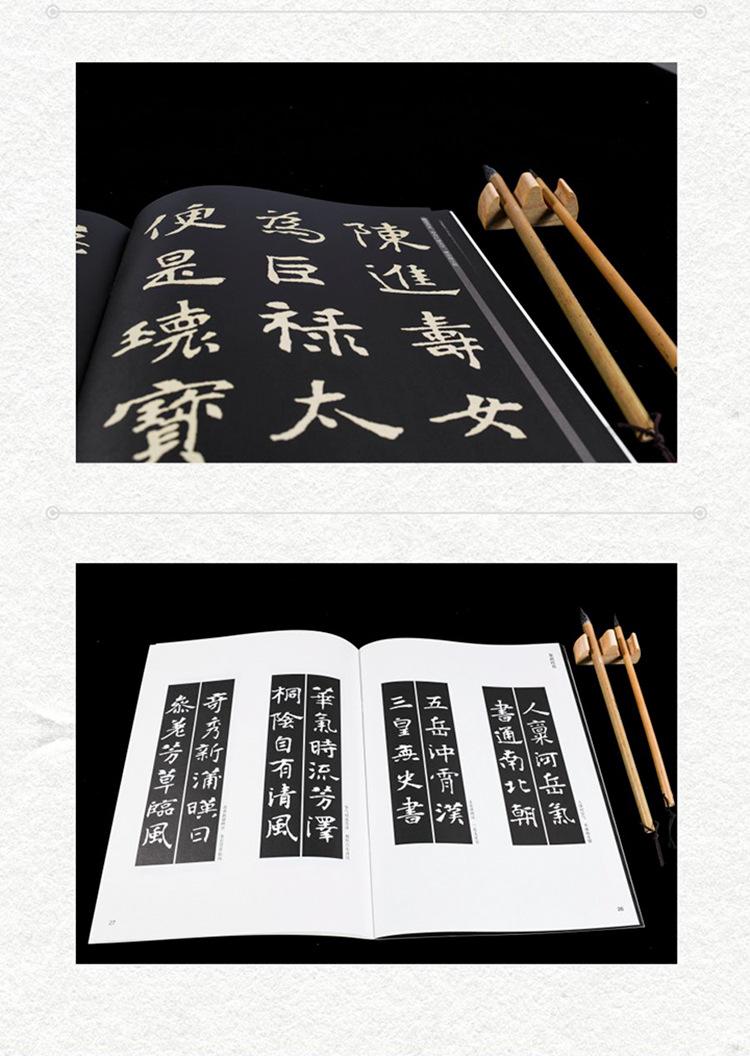 陳進壽女
為巨禄太
便是瓌寶
人稟河岳氣
書通南北朝
五岳沖霄漢
三皇無史書
26
華氣時流芳澤
桐陰自有清風
奇秀新蒲暎日
參差芳草臨風
27